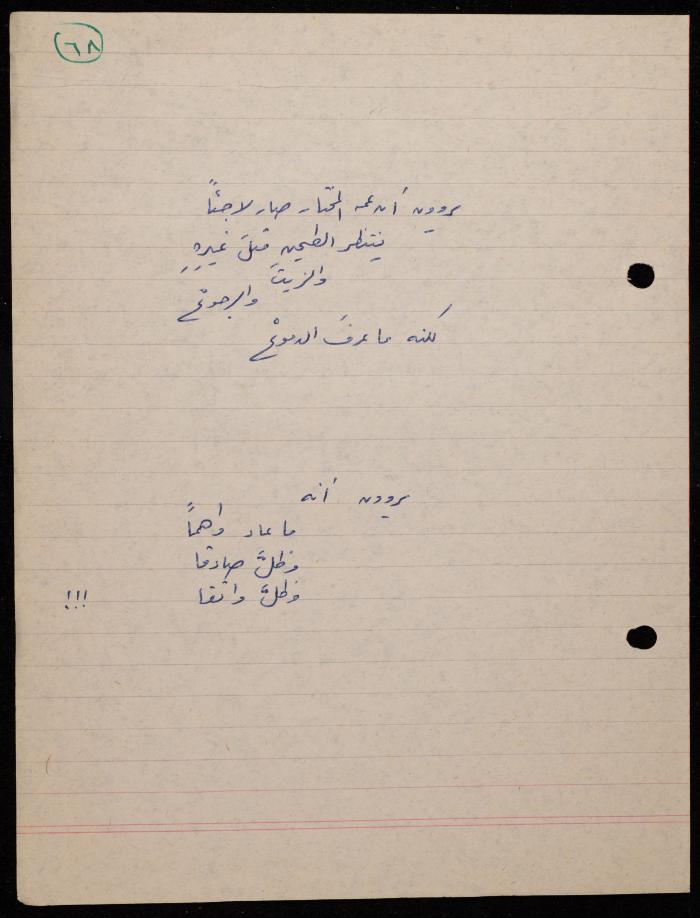 ٦٨
يروون أن عمه المختار صار لاجئاً
ينتظر الطحين قبلَ غيرِهِ
والزيتَ
والرجوعْ
لكنه ما عرفَ الدموعْ
يروون أنه
ما عاد واهماً
وظلَّ صادقا
وظلَّ واثقا !!!